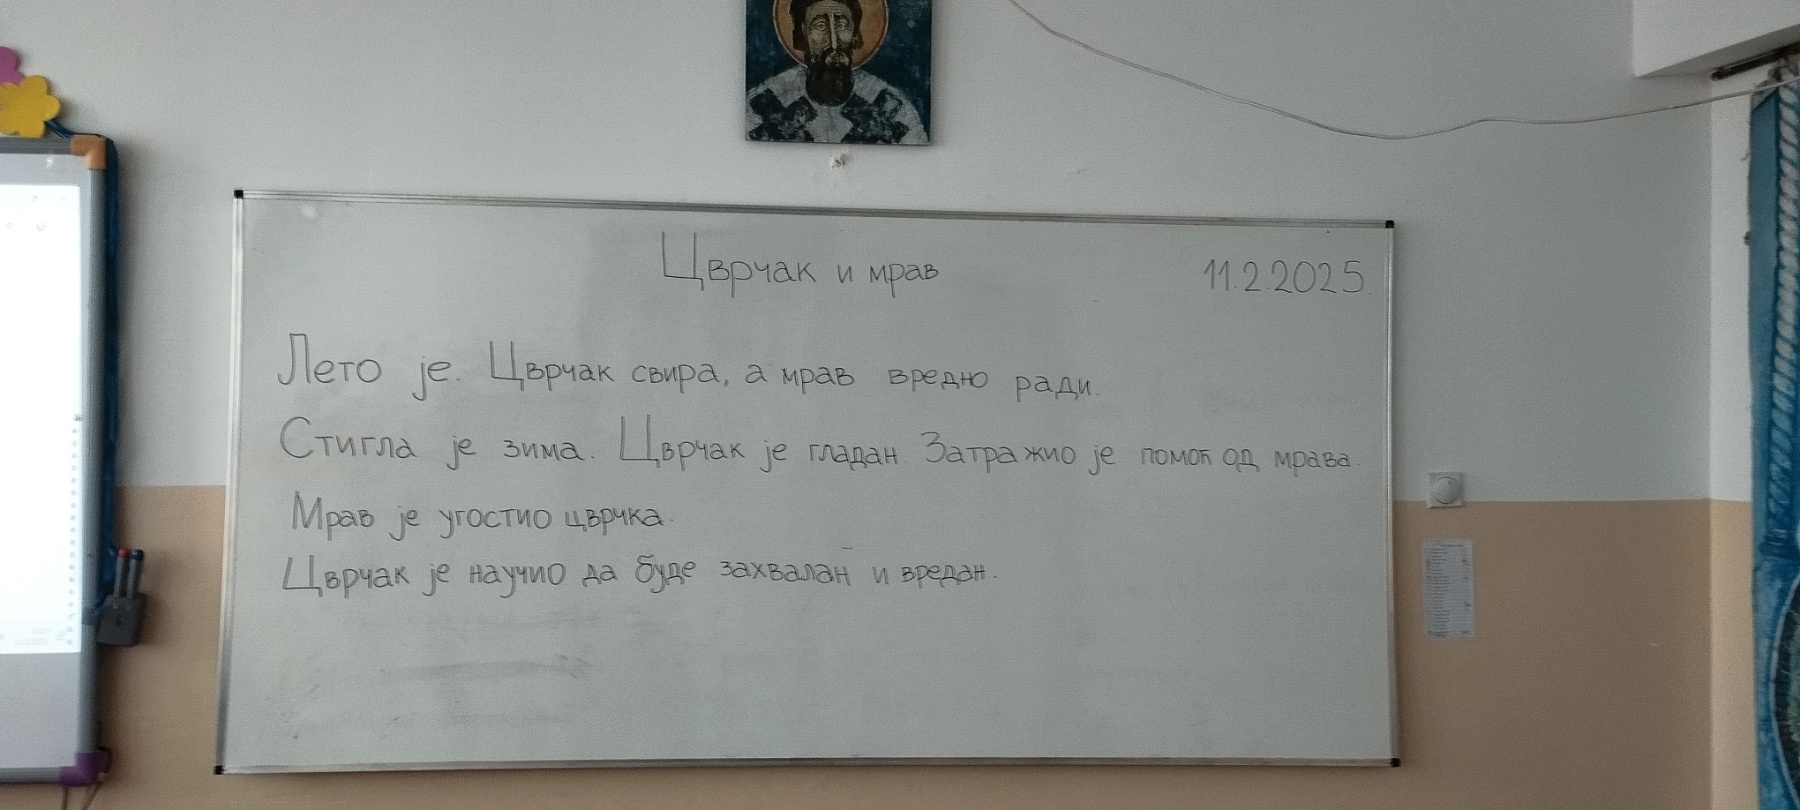 Цврчак и мрав 11.2.2025.
Лето је. Цврчак свира, а мрав вредно ради.
Стигла је зима. Цврчак је гладан. Затражио је помоћ од мрава.
Мрав је угостио цврчка.
Цврчак је научио да буде захвалан и вредан.